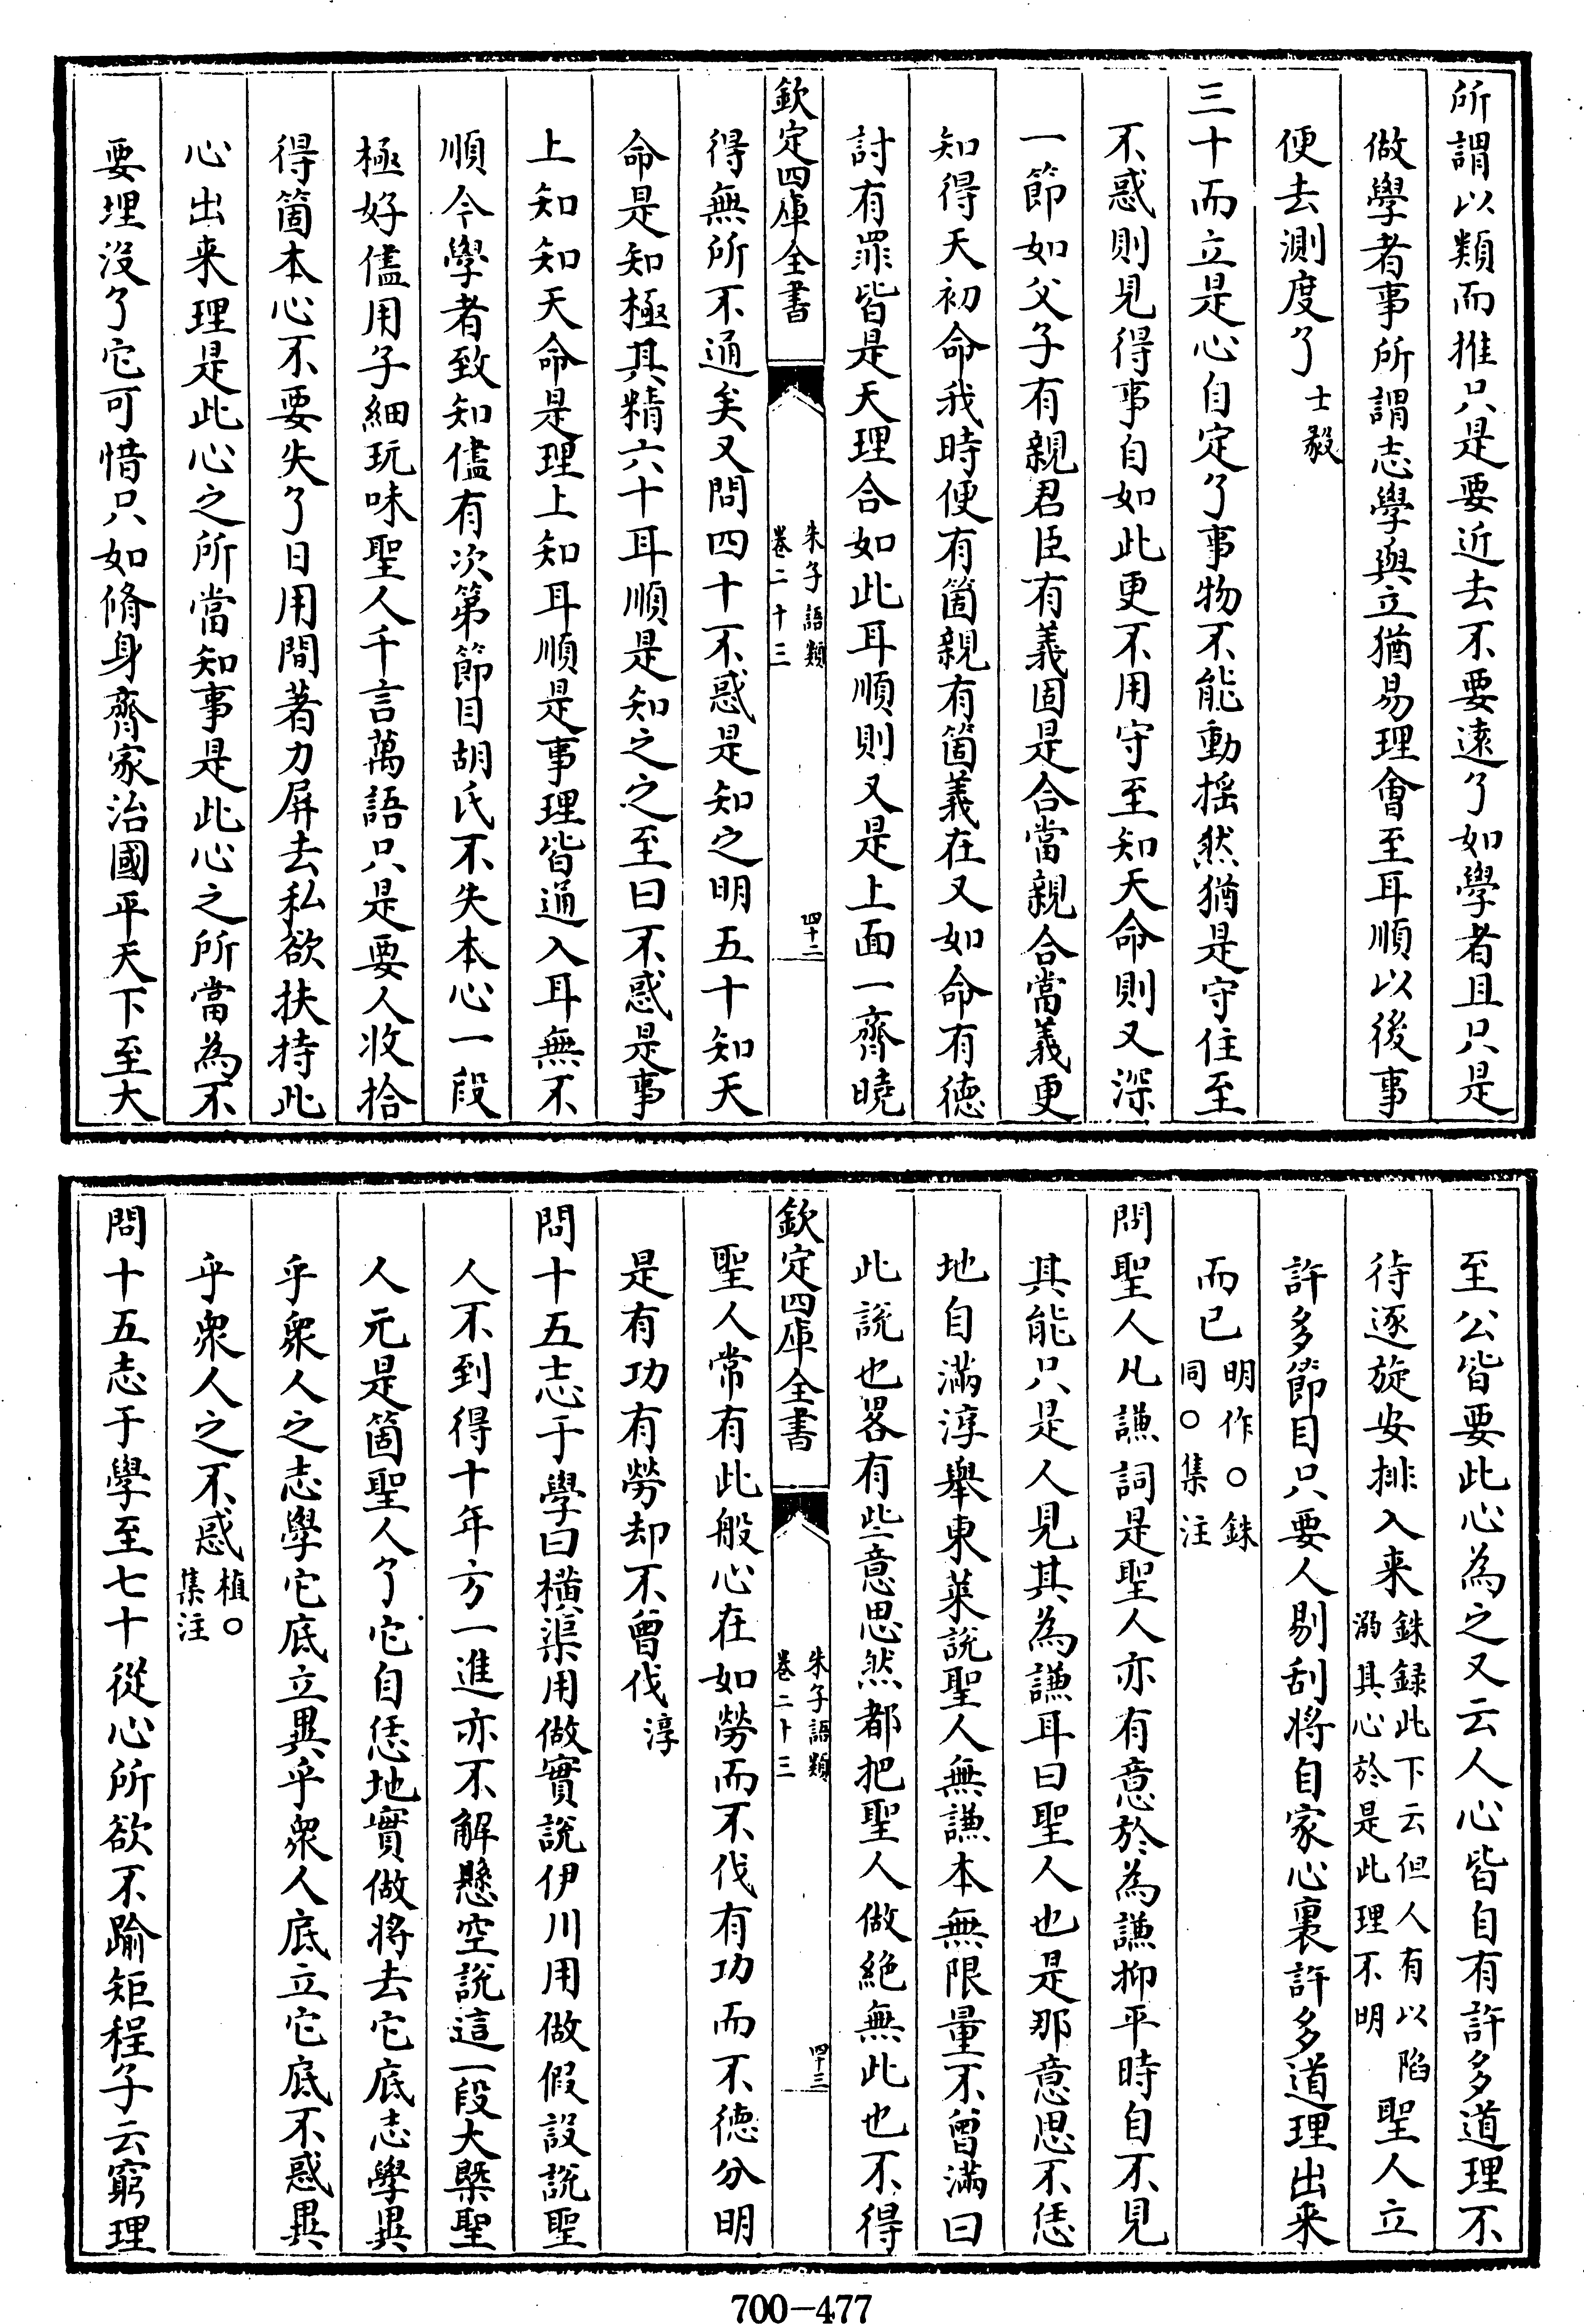 所謂以類而推只是要近去不要遠了如學者且只是
做學者事所謂志學與立猶易理會至耳順以後事
便去測度了士毅
三十而立是心自定了事物不能動搖然猶是守住至
不惑則見得事自如此更不用守至知天命則又深
一節如父子有親君臣有義固是合當親合當義更
知得天初命我時便有箇親有箇義在又如命有德
討有罪皆是天理合如此耳順則又是上面一齊曉
欽定四庫全書
朱子語類
卷二十三
四十二
得無所不通矣又問四十不惑是知之明五十知天
命是知極其精六十耳順是知之之至曰不惑是事
上知知天命是理上知耳順是事理皆通入耳無不
順今學者致知儘有次第節目胡氏不失本心一段
極好儘用子細玩味聖人千言萬語只是要人收拾
得箇本心不要失了日用間著力屏去私欲扶持此
心出来理是此心之所當知事是此心之所當為不
要埋沒了它可惜只如脩身齊家治國平天下至大
至公皆要此心為之又云人心皆自有許多道理不
待逐旋安排入来銖録此下云但人有以陷
溺其心於是此理不明聖人立
許多節目只要人剔刮將自家心裏許多道理出来
而已明作○銖
同○集注
問聖人凡謙詞是聖人亦有意於為謙抑平時自不見
其能只是人見其為謙耳曰聖人也是那意思不恁
地自滿淳舉東萊說聖人無謙本無限量不曾滿曰
此說也畧有些意思然都把聖人做絕無此也不得
欽定四庫全書
朱子語類
卷二十三
四十三
聖人常有此般心在如勞而不伐有功而不德分明
是有功有勞却不曾伐淳
問十五志于學曰橫渠用做實說伊川用做假設說聖
人不到得十年方一進亦不解懸空說這一段大槩聖
人元是箇聖人了它自恁地實做將去它底志學異
乎衆人之志學它底立異乎衆人底立它底不惑異
乎衆人之不惑植○
集注
問十五志于學至七十從心所欲不踰矩程子云窮理
700-477